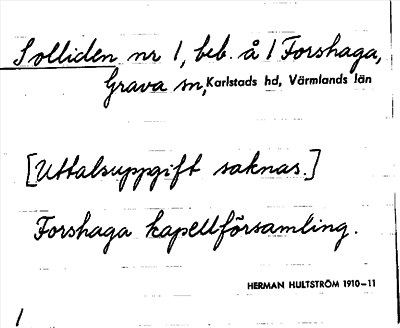 Solliden nr 1, beb. å 1 Forshaga,
Grava sn, Karlstads hd, Värmlands län
[Uttalsuppgift saknas.]
Forshaga kapellförsamling.
HERMAN HULTSTRÖM 1910–11
1